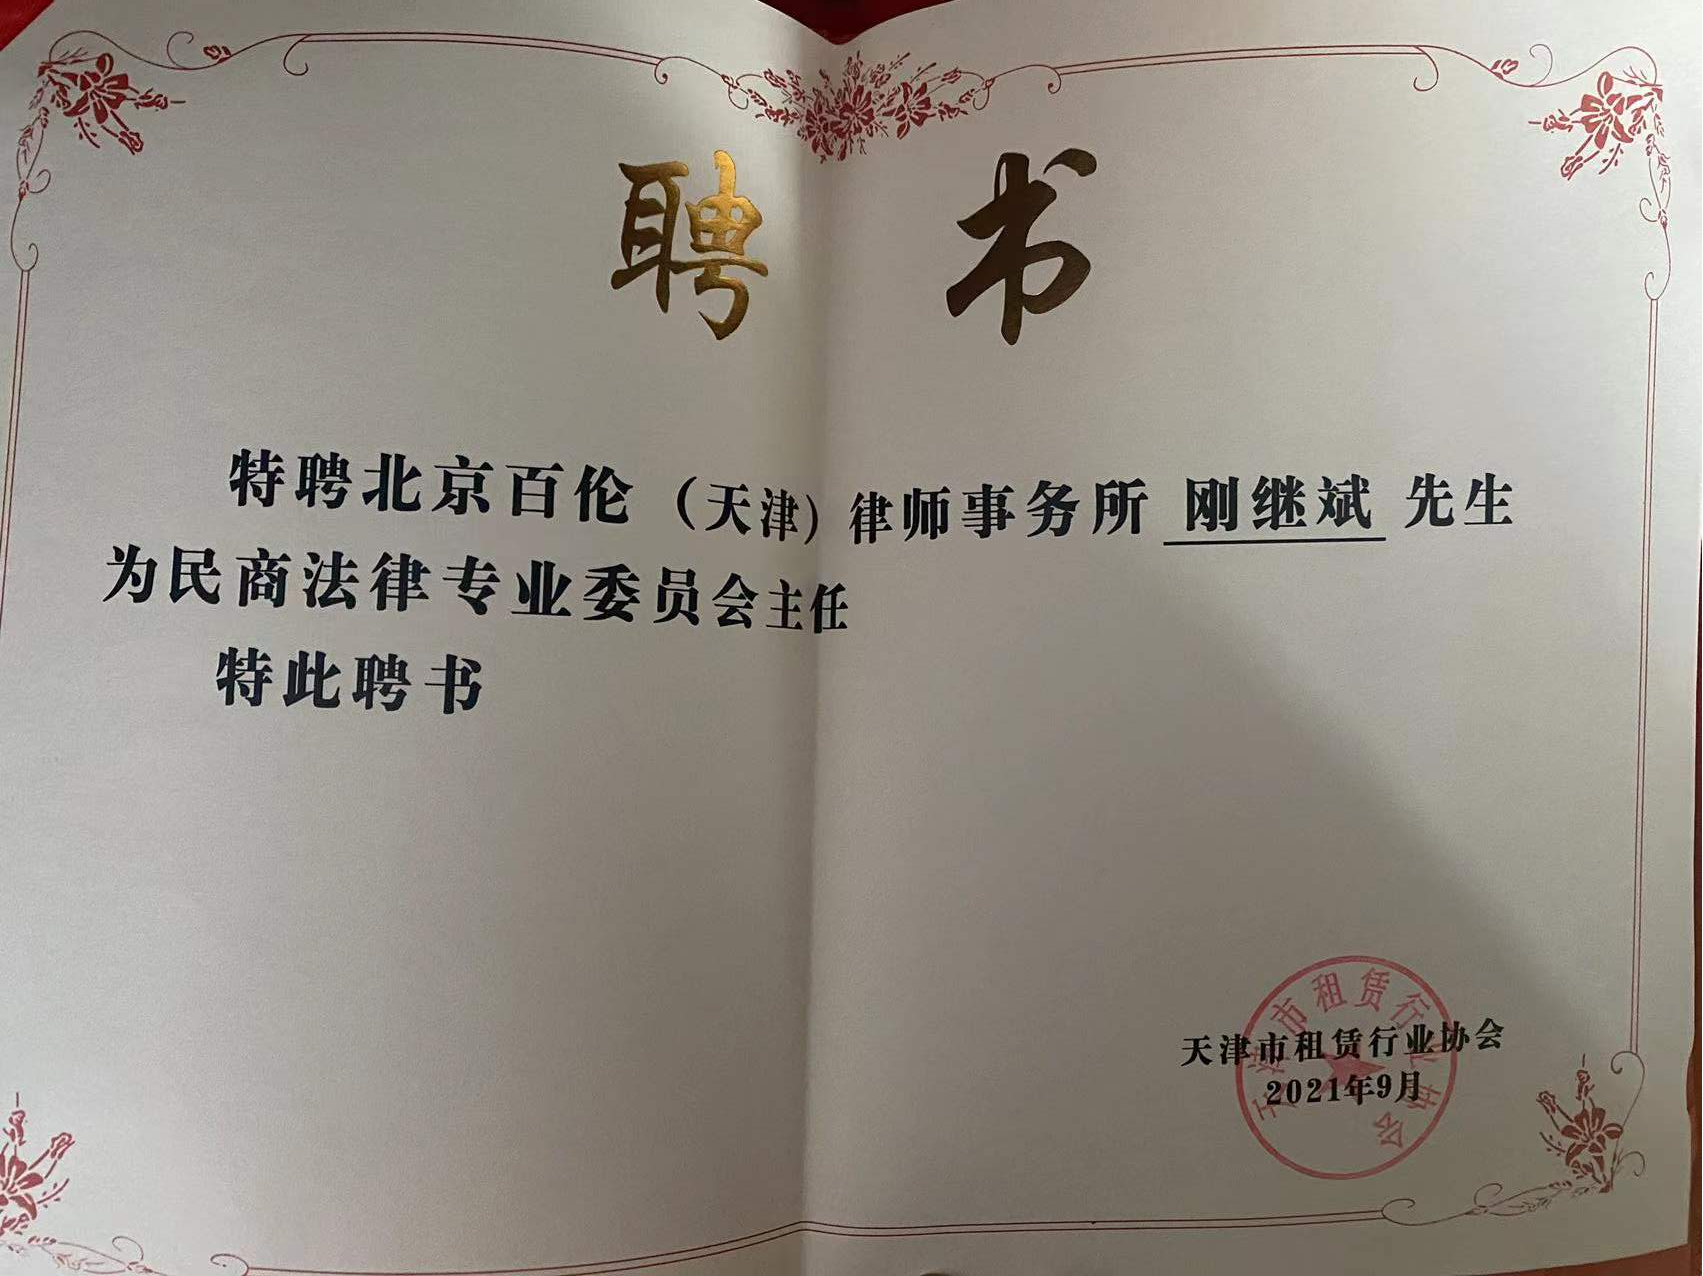 聘书
特聘北京百伦（天津）律师事务所 刚继斌 先生
为民商法律专业委员会主任
特此聘书
天津市租赁行业协会
2021年9月
天津市租赁行业协会